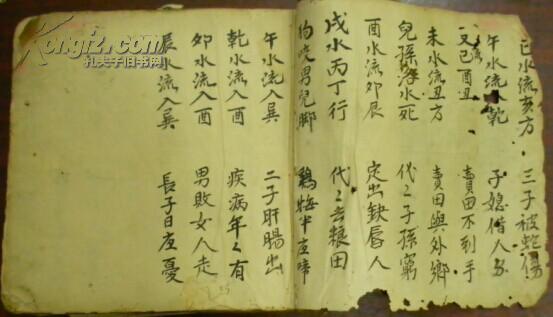 巳水流亥方 三子被蛇傷
午水流乾 子媳偕人
又己酉丑 賣田不到手
未水流丑方 賣田與外鄉
兒孫落水死 代〻子孫窮
酉水流卯辰 定出缺唇人
戌水丙丁行 代〻去粮田
狗咬男兒脚 鷄啼半夜啼
午水流入巽 二子肝腸出
乾水流入酉 疾病年〻有
卯水流入酉 男敗女人走
辰水流入巽 長子日夜憂
Kongfz.com
孔夫子旧书网